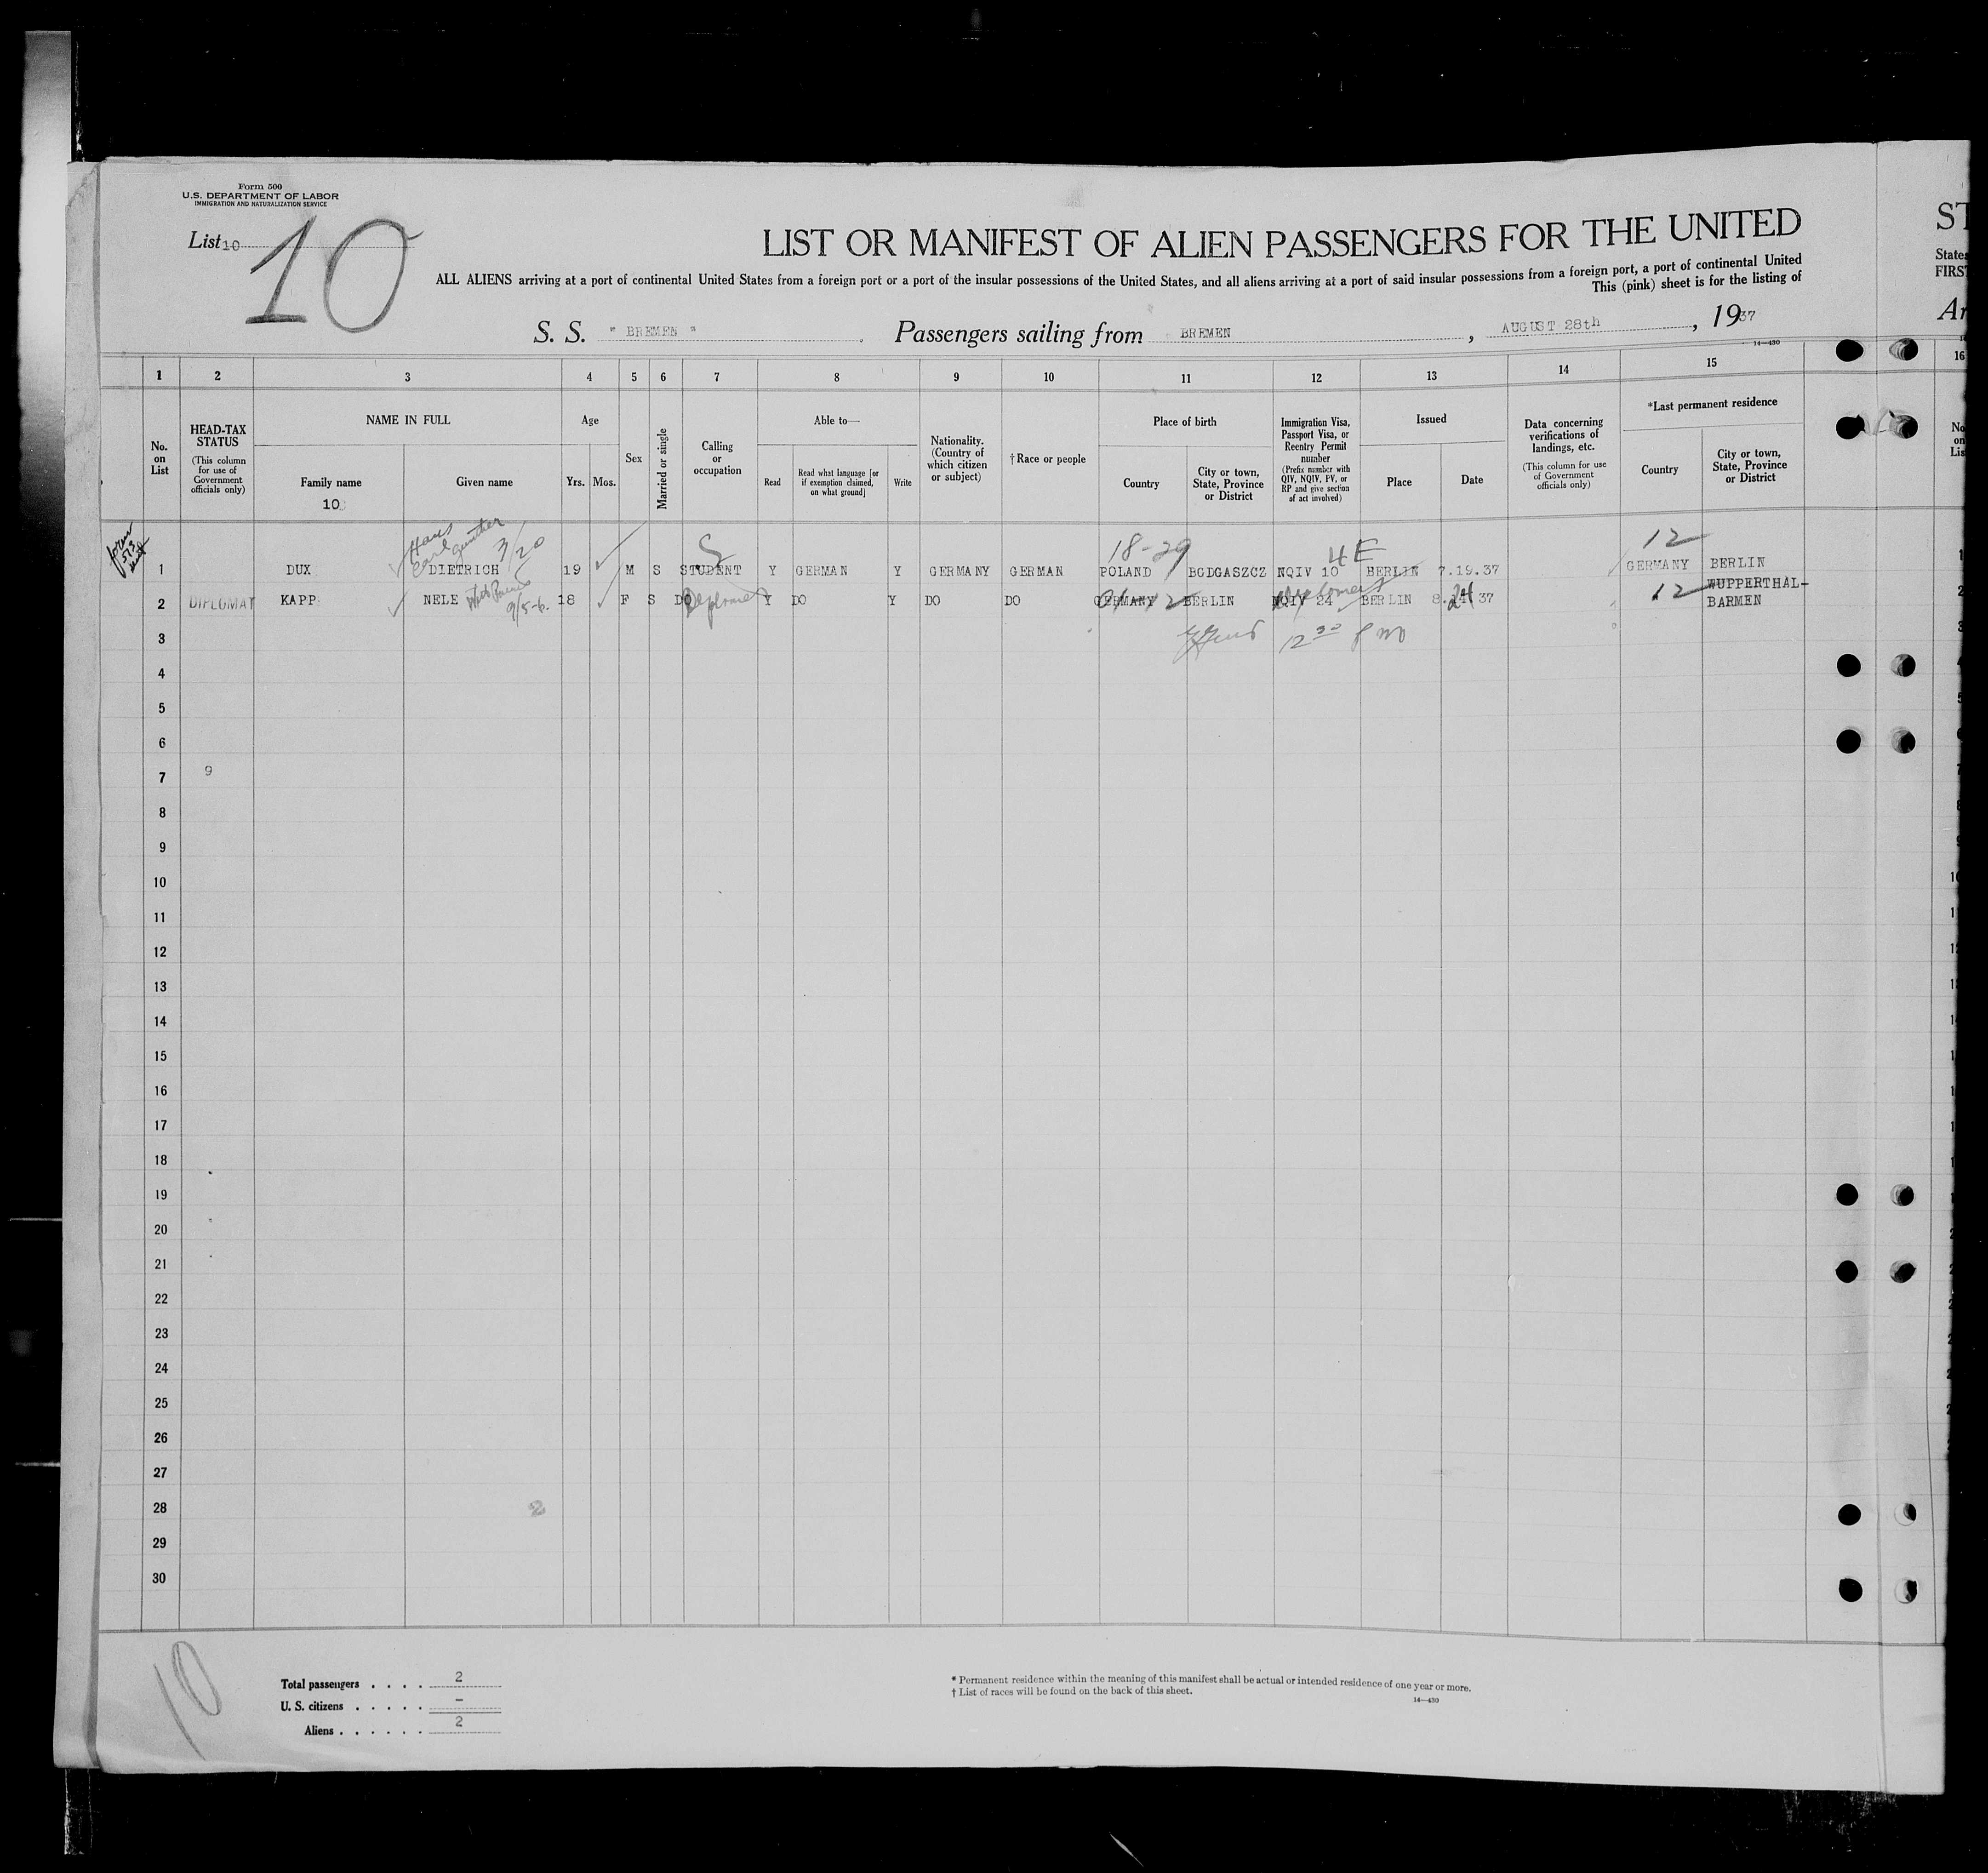 Form 500
U.S. DEPARTMENT OF LABOR
IMMIGRATION AND NATURALIZATION SERVICE
List 10
10
LIST OR MANIFEST OF ALIEN PASSENGERS FOR THE UNITED
ST
ALL ALIENS arriving at a port of continental United States from a foreign port or a port of the insular possessions of the United States, and all aliens arriving at a port of said insular possessions from a foreign port, a port of continental United
State
This (pink) sheet is for the listing of
FIRS
S. S. " BREMEN " Passengers sailing from BREMEN, AUGUST 28th, 1937
Ar
14—430
1 2 3 4 5 6 7 8 9 10 11 12 13 14 15 16
No. on List
HEAD-TAX STATUS
(This column for use of Government officials only)
NAME IN FULL
Family name
10
Given name
Age
Yrs. Mos.
Sex
Married or single
Calling or occupation
Able to—
Read
Read what language [or if exemption claimed, on what ground]
Write
Nationality. (Country of which citizen or subject)
†Race or people
Place of birth
Country
City or town, State, Province or District
Immigration Visa, Passport Visa, or Reentry Permit number
(Prefix number with QIV, NQIV, PV, or RP and give section of act involved)
Issued
Place
Date
Data concerning verifications of landings, etc.
(This column for use of Government officials only)
*Last permanent residence
Country
City or town, State, Province or District
No on Lis
form 513
Hans
Carl Günther 3/20 S 18-29 4E 12
1 DUX DIETRICH 19 M S STUDENT Y GERMAN Y GERMANY GERMAN POLAND BGDGASZCZ NQIV 10 BERLIN 7.19.37 GERMANY BERLIN
2 DIPLOMAT KAPP NELE 9/5-6 18 F S DO Diplomat Y DO Y DO DO GERMANY BERLIN NQIV 24 Diplomat BERLIN 8.24 37 12 WUPPERTHAL-
BARMEN
3 12 30
4
5
6
7 9
8
9
10
11
12
13
14
15
16
17
18
19
20
21
22
23
24
25
26
27
28 2
29
30
10
Total passengers . . . . 2
U. S. citizens . . . . . –
Aliens . . . . . . 2
* Permanent residence within the meaning of this manifest shall be actual or intended residence of one year or more.
† List of races will be found on the back of this sheet.
14—430